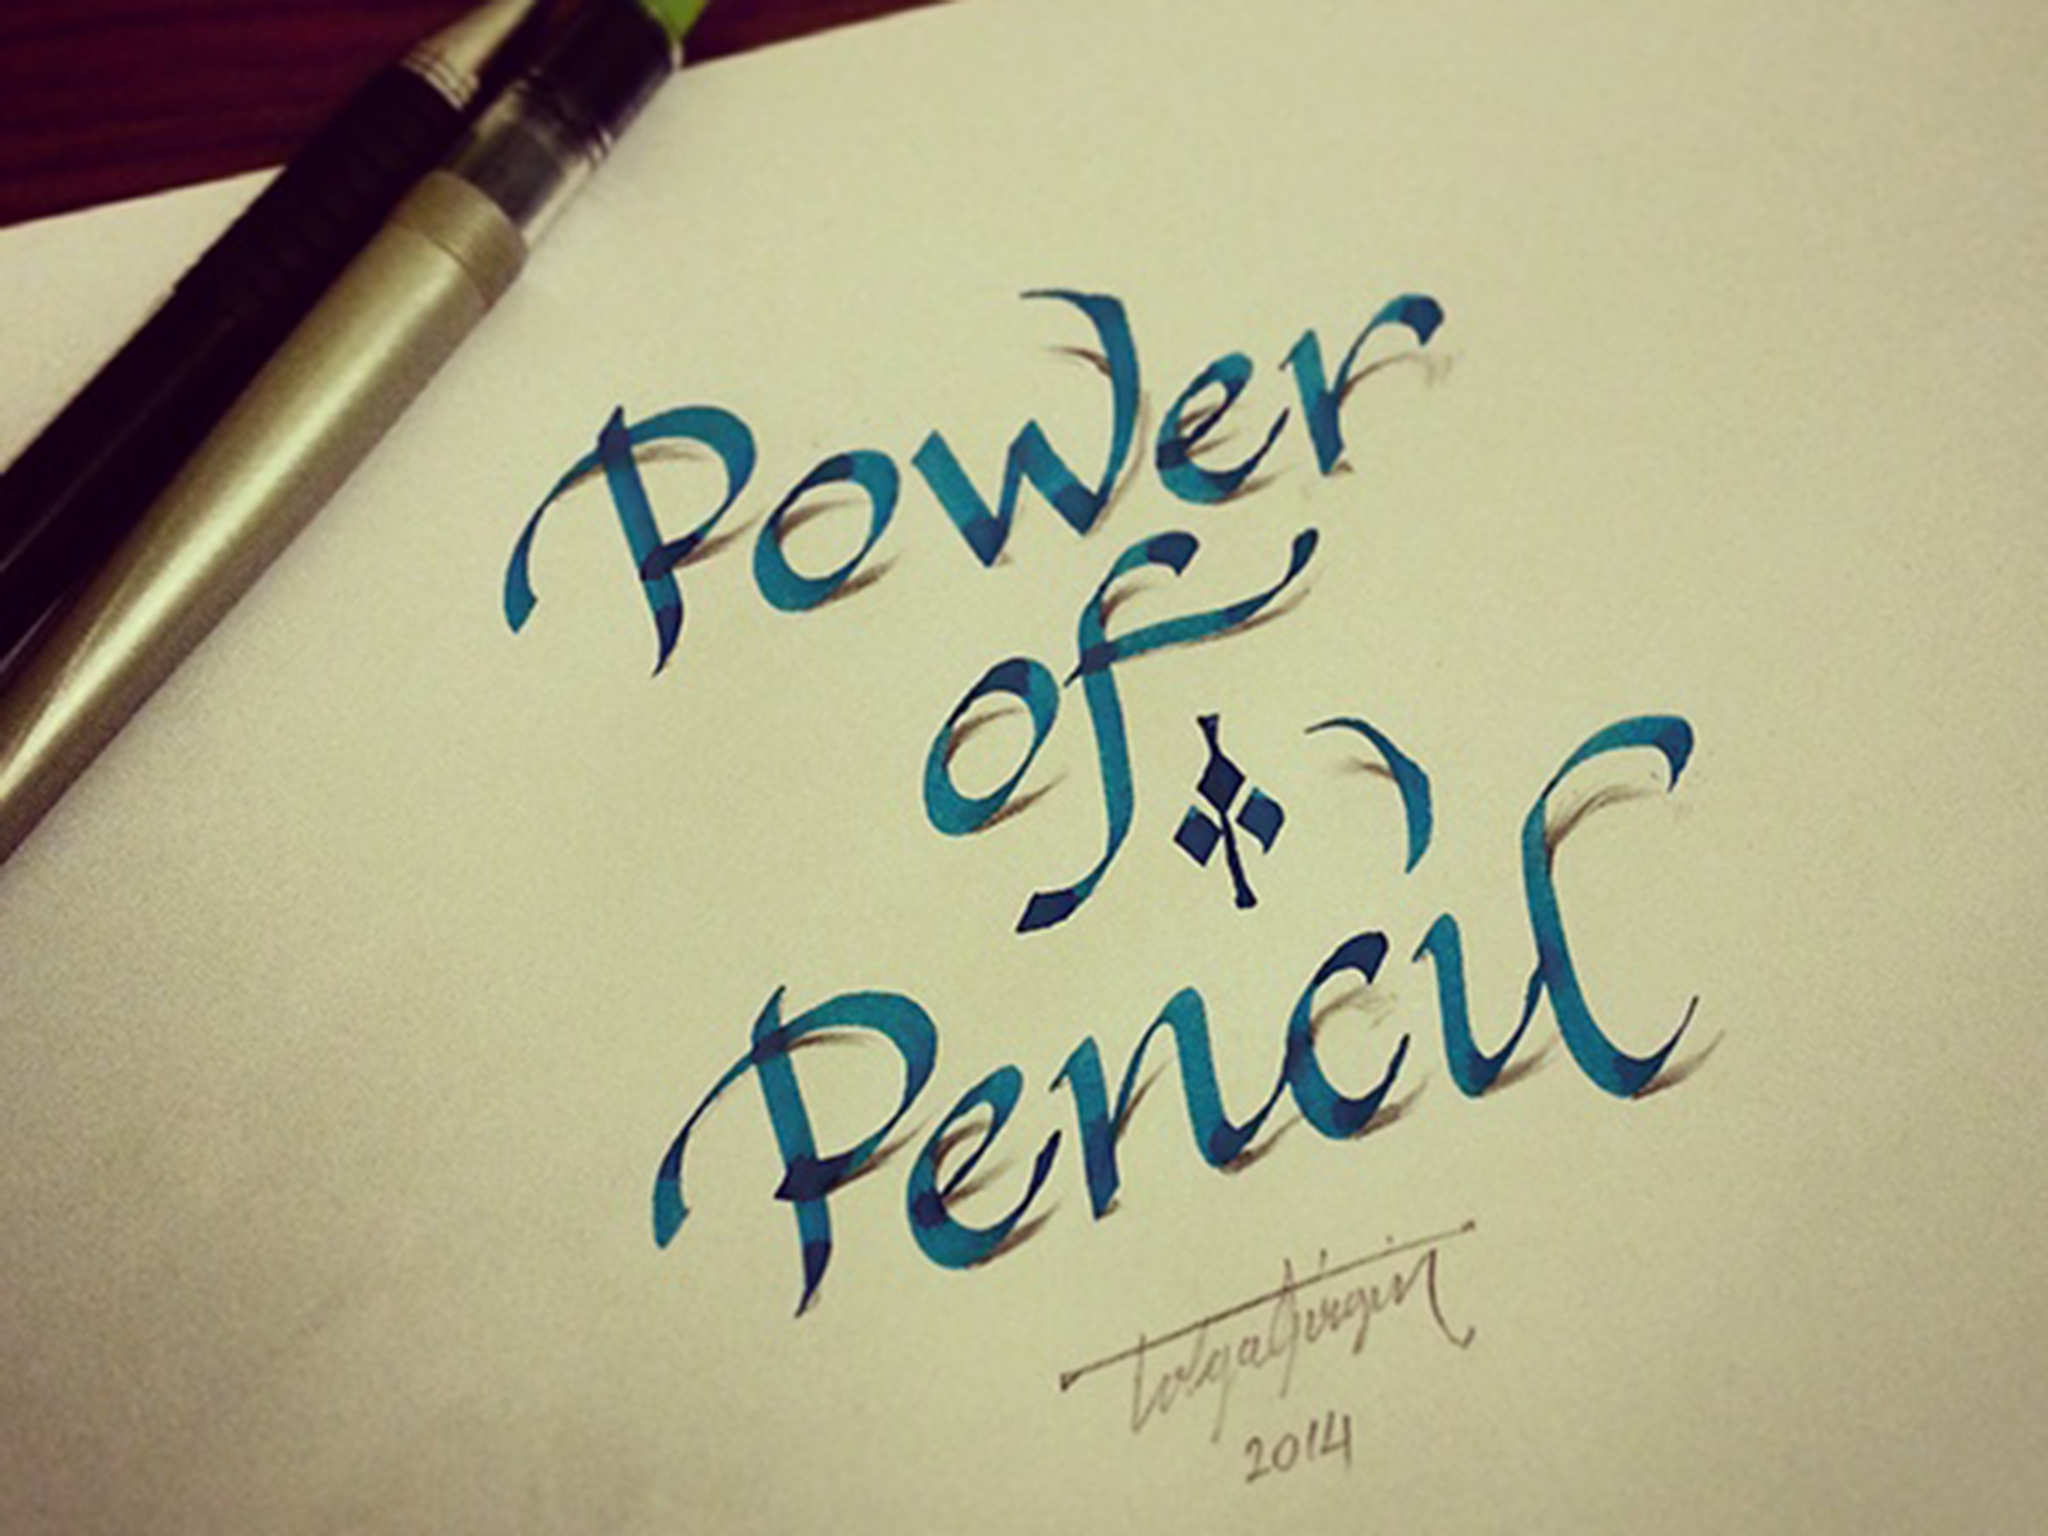 Power
of
Pencil
Tolga Girgin
2014